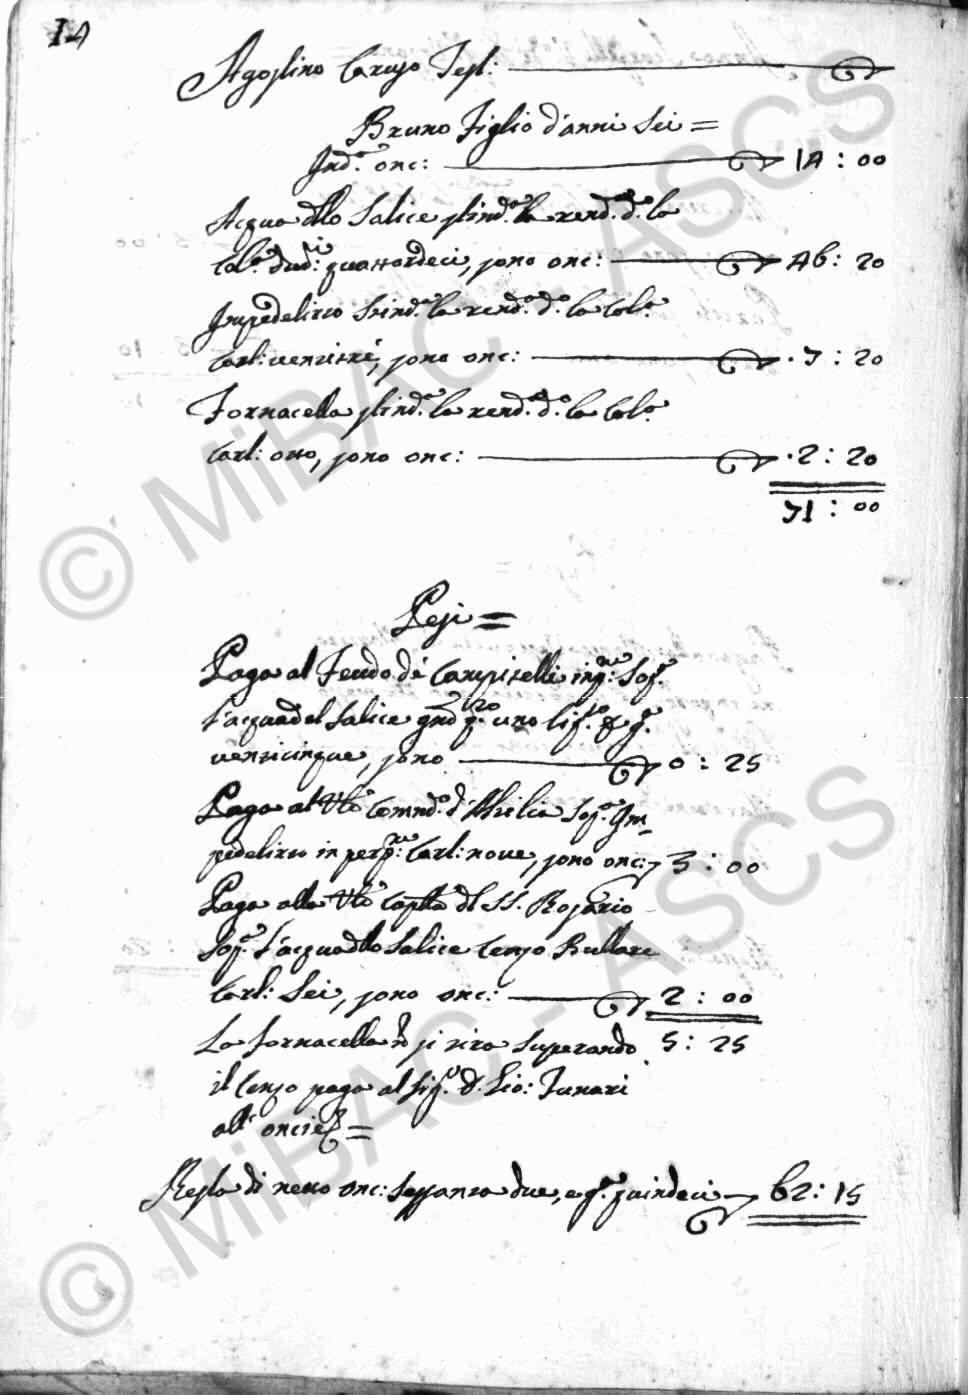 14
Agostino Caruso Test:
Bruno Figlio d'anni Sei =
Ind.a onc: 14 : 00
Acqua dllo Salice stim.d la rend.a d.o la
Cal.a dud.ci quattordeci, sono onc: 46 : 20
Impedelirco Stind.a la rend.a d.o la Col.a
Carl: ventitré, sono onc: 7 : 20
Fornacella stind.a la rend.a d.o la Col.a
Carl: otto, sono onc: 2 : 20
71 : 00
Pesi =
Paga al Feudo dé Campitelli in Sop.a
l'acqua del Salice uno
venticinque, sono 0 : 25
Paga al Comnd.o d' Sop.a Im-
pedelirco in perp: Carl: nove, sono onc: 3 : 00
Paga alla Capplla dl SS. Rosario
Sop.a l'acqua dllo Salice Censo Bullare
Carl: Sei, sono onc: 2 : 00
La Fornacella si tira superando 5 : 25
il Censo paga al Sig.r D. Gio: Funari
all' oncie =
Resta di netto onc: Sessanta due, e g.a quindeci 62 : 15
© MiBAC - ASCS
© MiBAC - ASCS